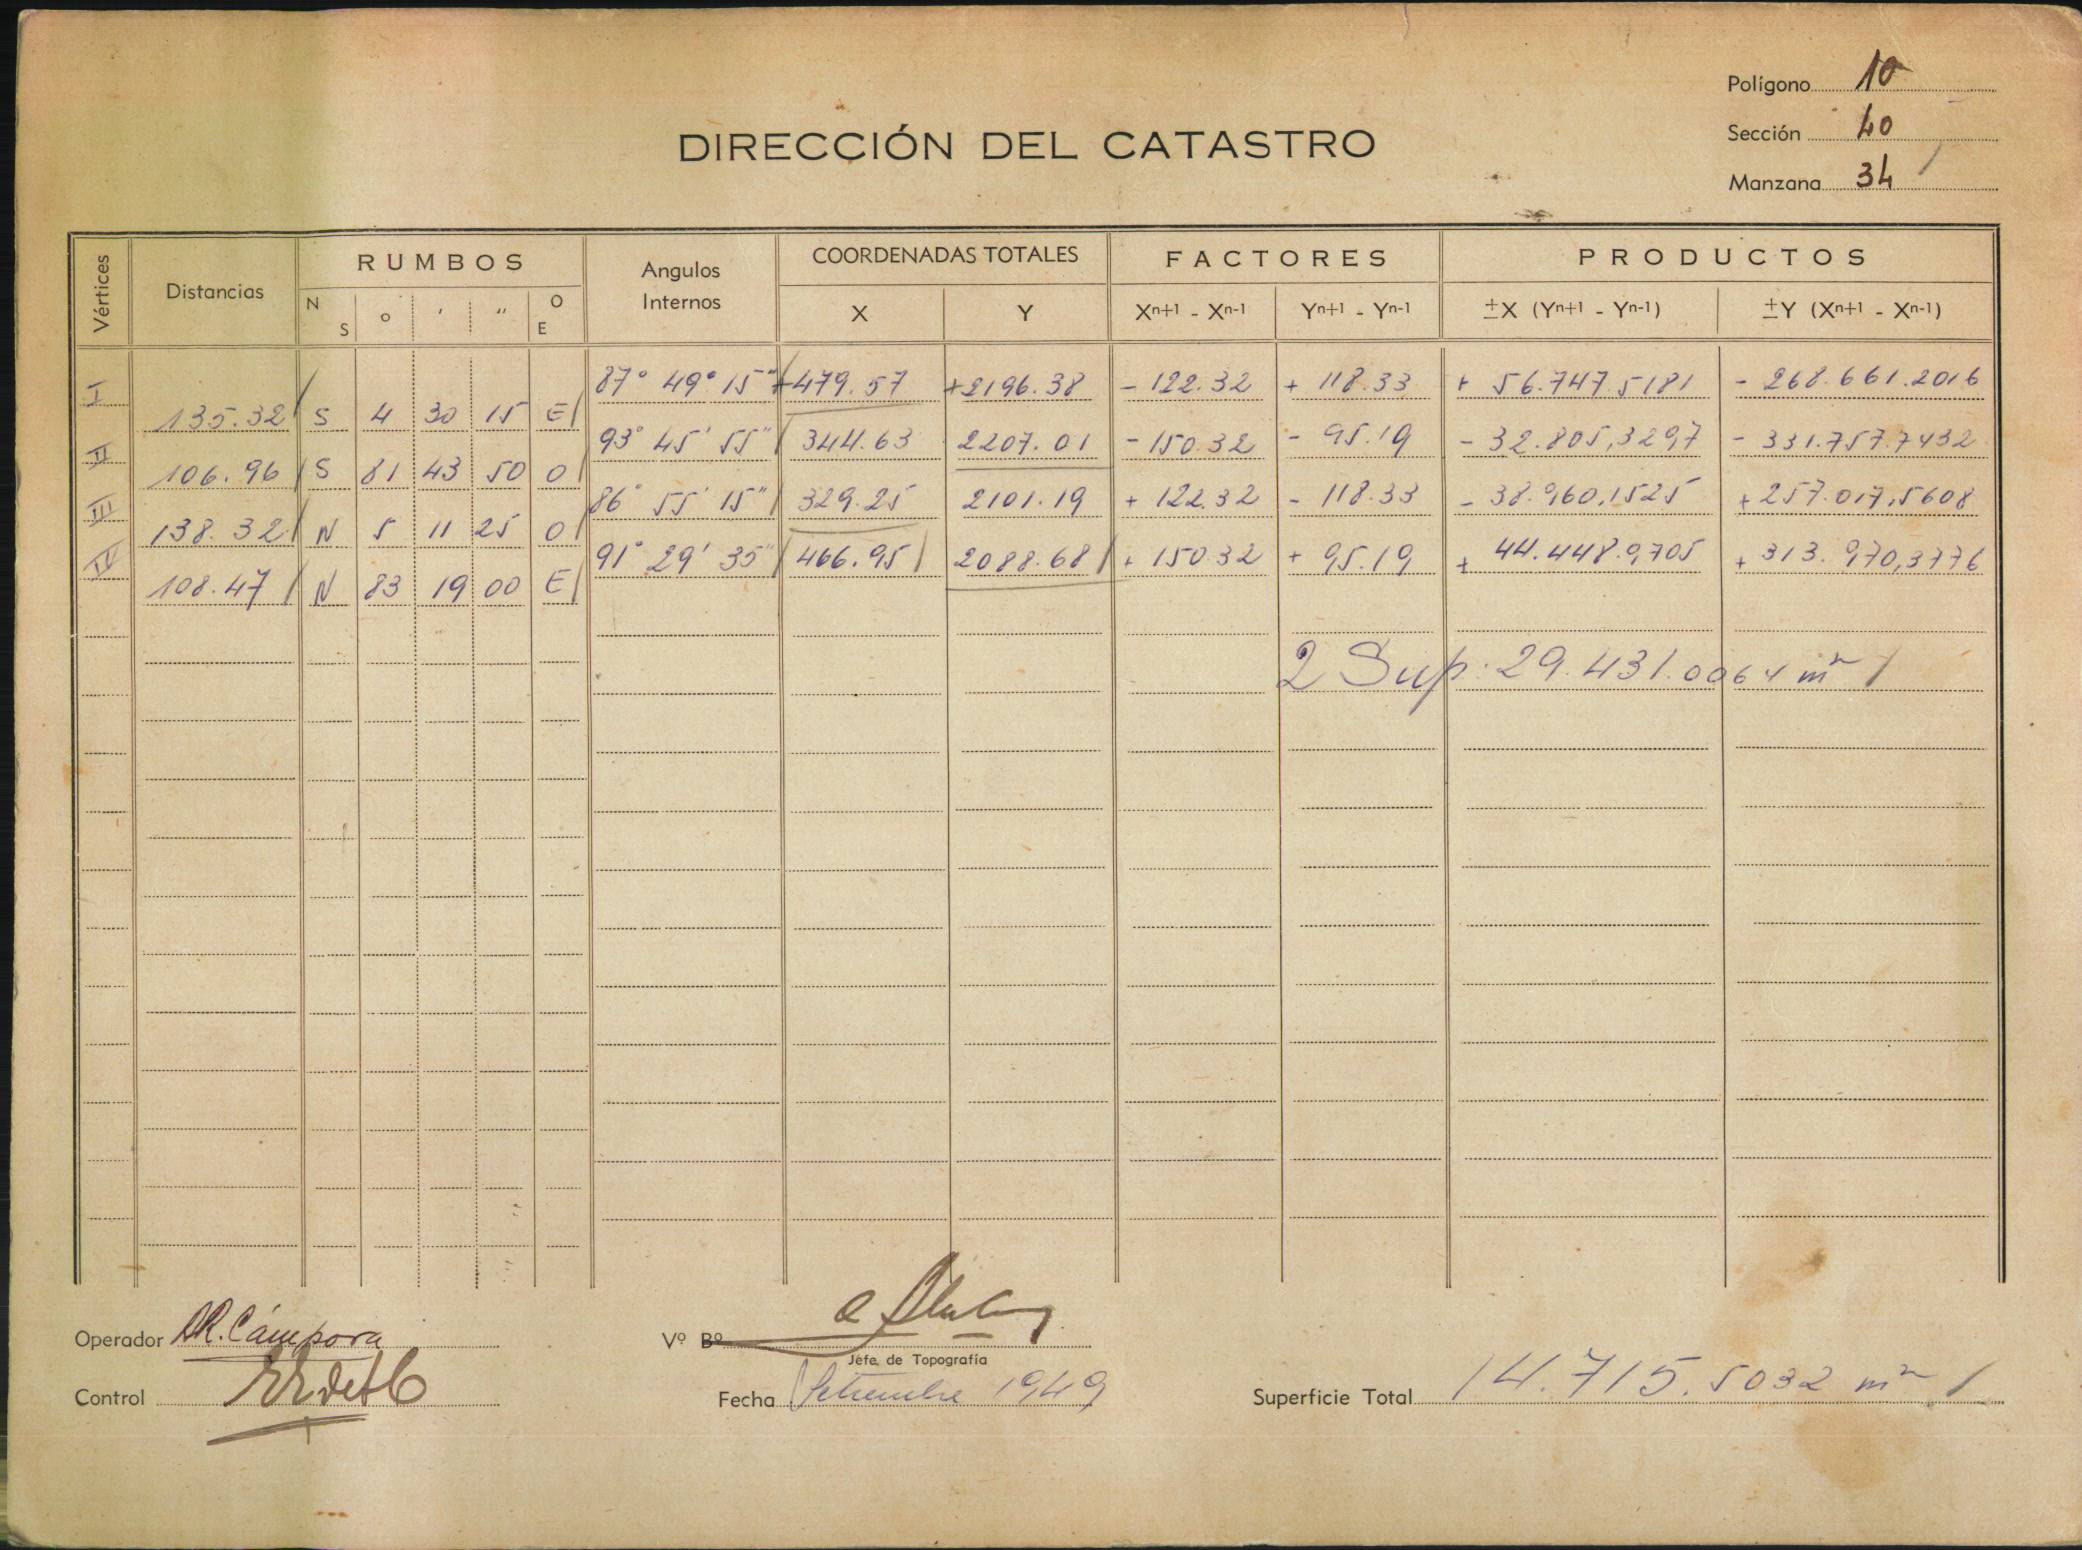 Polígono 10
DIRECCIÓN DEL CATASTRO
Sección 40
Manzana 34
Vértices Distancias RUMBOS Angulos Internos COORDENADAS TOTALES FACTORES PRODUCTOS
N S o ' " O E X Y Xn+1 - Xn-1 Yn+1 - Yn-1 ±X (Yn+1 - Yn-1) ±Y (Xn+1 - Xn-1)
I 87° 49° 15" +479.57 +2196.38 - 122.32 + 118.33 + 56.747.5181 - 268.661.2016
135.32 S 4 30 15 E
II 93° 45' 55" 344.63 2207.01 - 150.32 - 95.19 - 32.805,3297 - 331.757.7432
106.96 S 81 43 50 O
III 86° 55' 15" 329.25 2101.19 + 122.32 - 118.33 - 38.960,1525 + 257.017,5608
138.32 N 5 11 25 O
IV 91° 29' 35" 466.95 2088.68 + 150.32 + 95.19 + 44.448.9705 + 313.970,3776
108.47 N 83 19 00 E
2 Sup: 29.431.0064 m²
Operador R. Cámpora
Vº Bº
Jefe de Topografía
Control
Fecha Setiembre 1949
Superficie Total 14.715.5032 m²